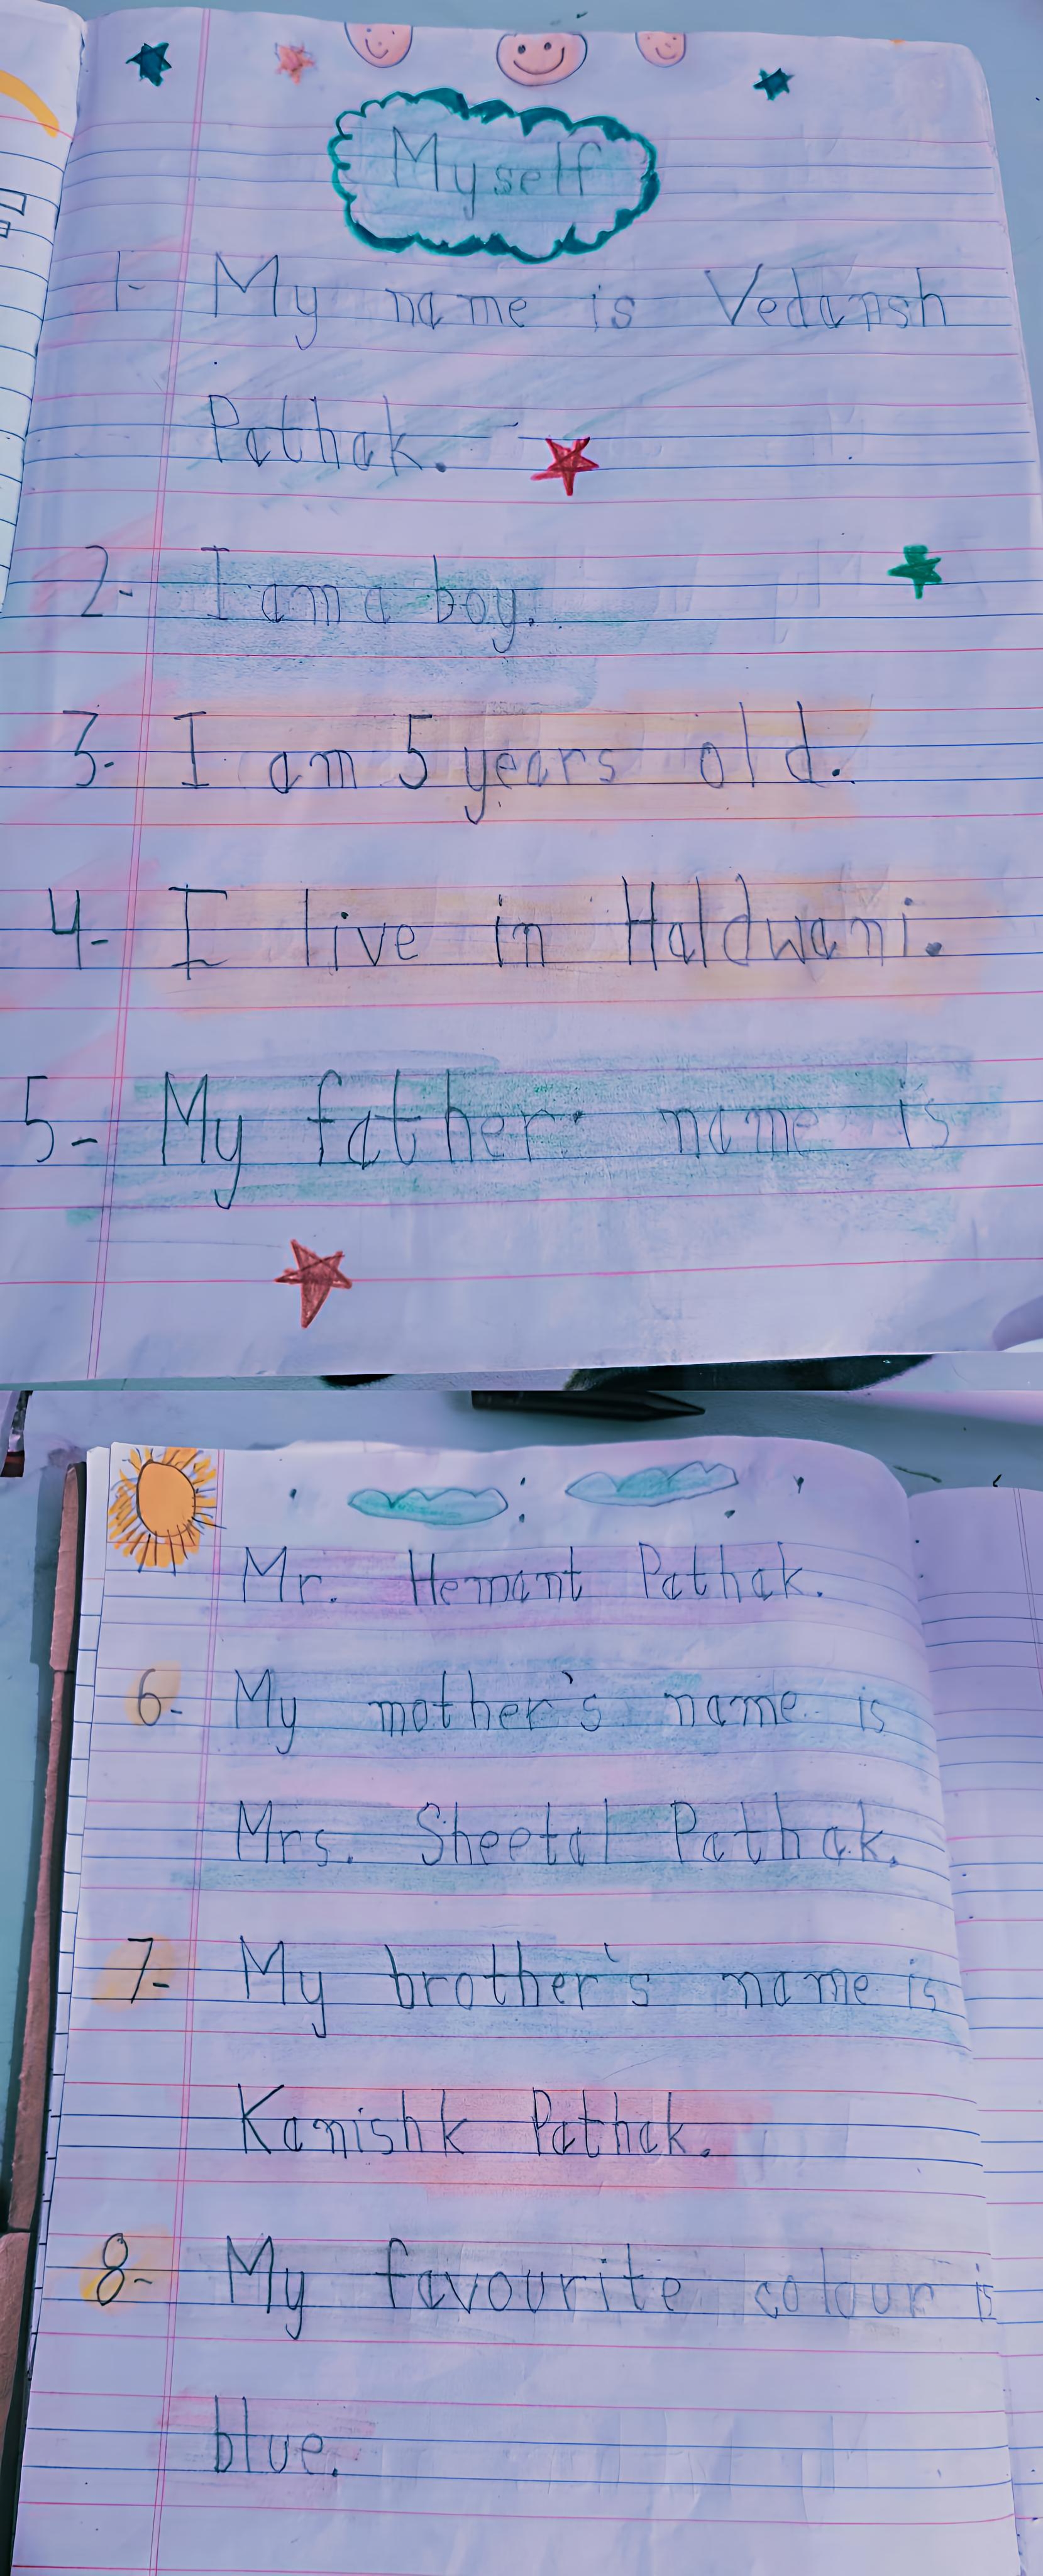 Myself
1- My name is Vedansh
Pathak.
2- I am a boy.
3- I am 5 years old.
4- I live in Haldwani.
5- My father name is
Mr. Hemant Pathak.
6- My mother's name is
Mrs. Sheetal Pathak.
7- My brother's name is
Kanishk Pathak.
8- My favourite colour is
blue.